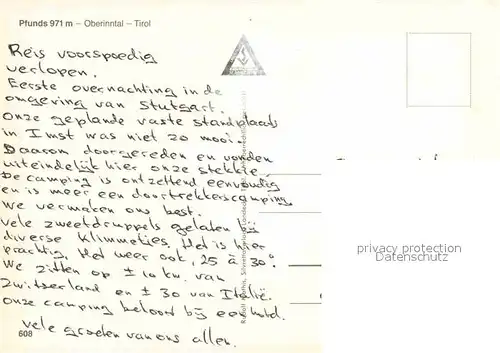 Pfunds 971 m – Oberinntal – Tirol
Reis voorspoedig
verlopen.
Eerste overnachting in de
omgeving van Stutgart.
Onze geplande vaste standplaats
in Imst was niet zo mooi.
Daarom doorgereden en vonden
uiteindelijk hier onze stekkie,
De camping is ontzettend eenvoudig
en is meer een doortrekkerscamping.
We vermaken ons best.
Vele zweetdruppels gelaten bij
diverse klimmetjes. Het is hier
prachtig, Het weer ook, 25 à 30°.
We zitten op ± 10 km. van
Zwitserland en ± 30 van Italië.
Onze camping behoort bij een hotel.
608
Vele groeten van ons allen.
privacy protection
Datenschutz